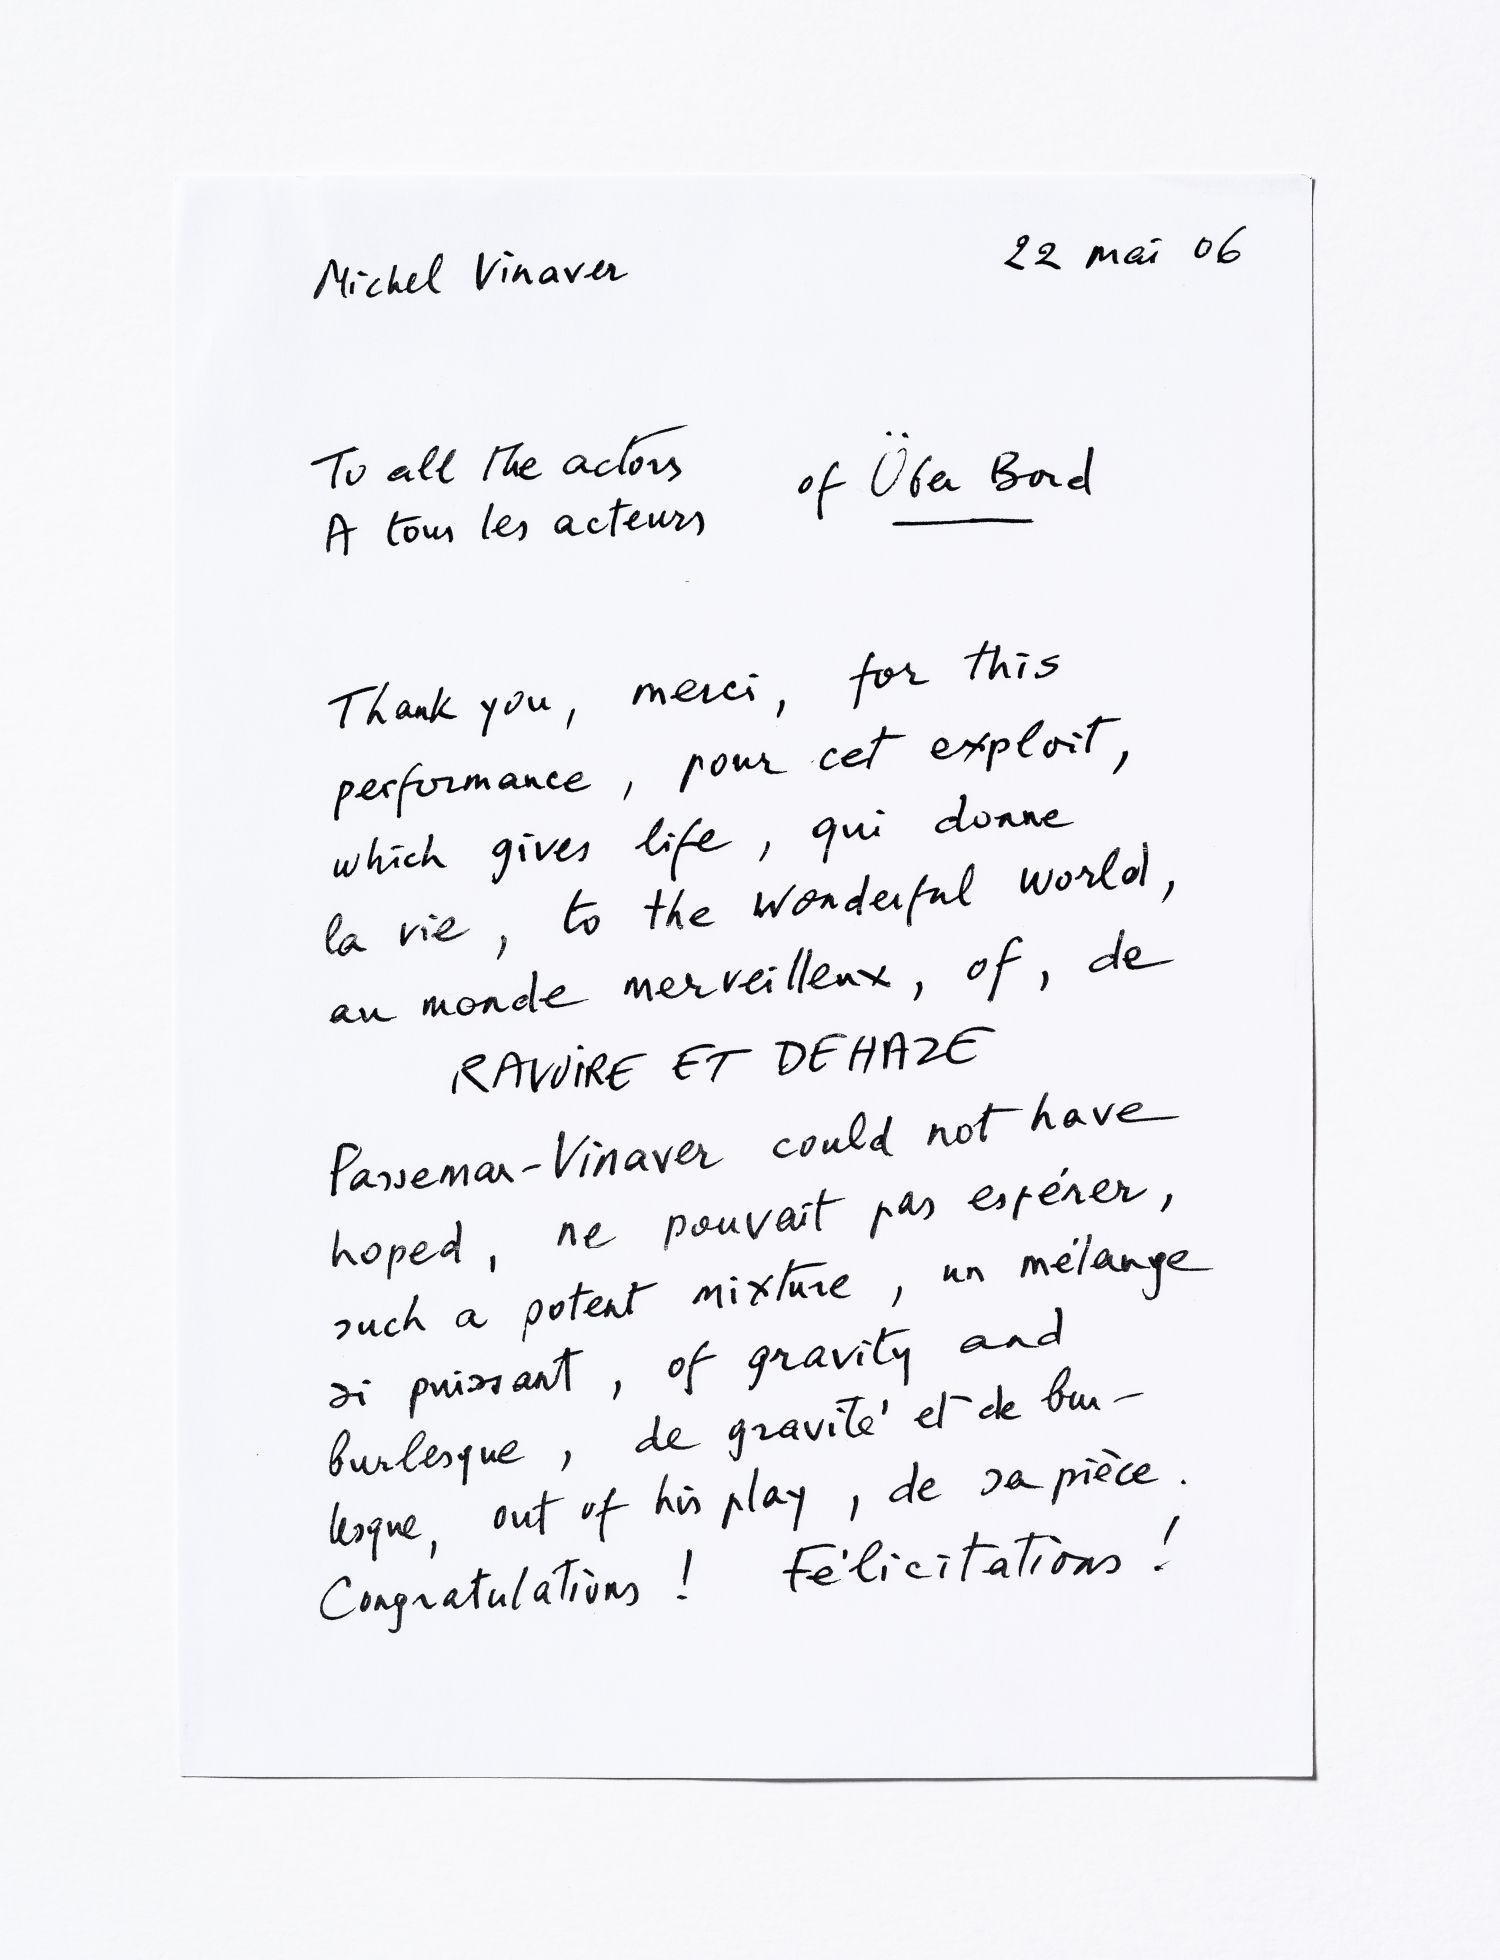 Michel Vinaver 22 mai 06
To all the actors
of Über Bord
A tous les acteurs
Thank you, merci, for this
performance, pour cet exploit,
which gives life, qui donne
la vie, to the wonderful world,
au monde merveilleux, of, de
RAVOIRE ET DEHAZE
Passemar-Vinaver could not have
hoped, ne pouvait pas espérer,
such a potent mixture, un mélange
si puissant, of gravity and
burlesque, de gravité et de bur-
lesque, out of his play, de sa pièce.
Congratulations! Félicitations!